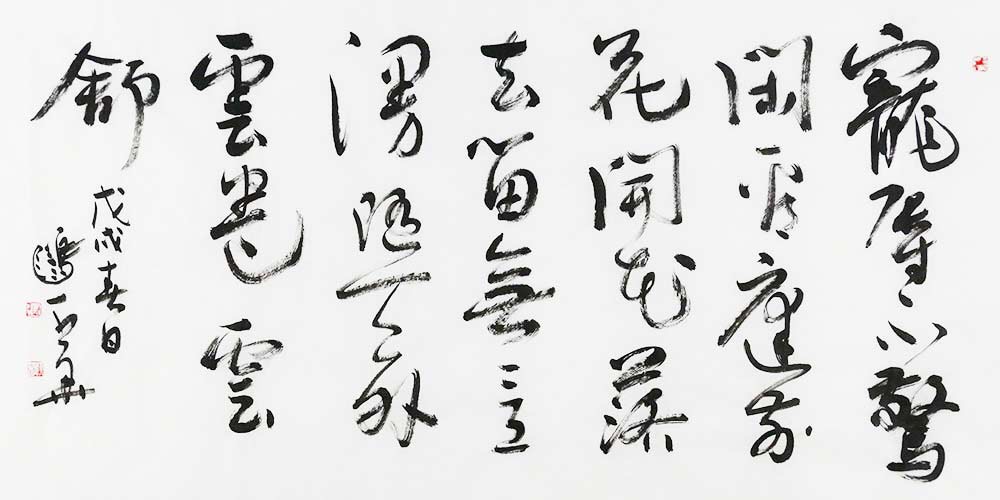 寵辱不驚
閑看庭前
花開花落
去留無意
漫隨天外
雲卷雲
舒
戊戌春日